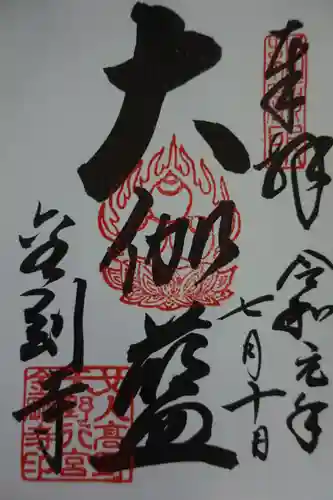 奉拝
令和元年
七月十日
大伽藍
金剛寺